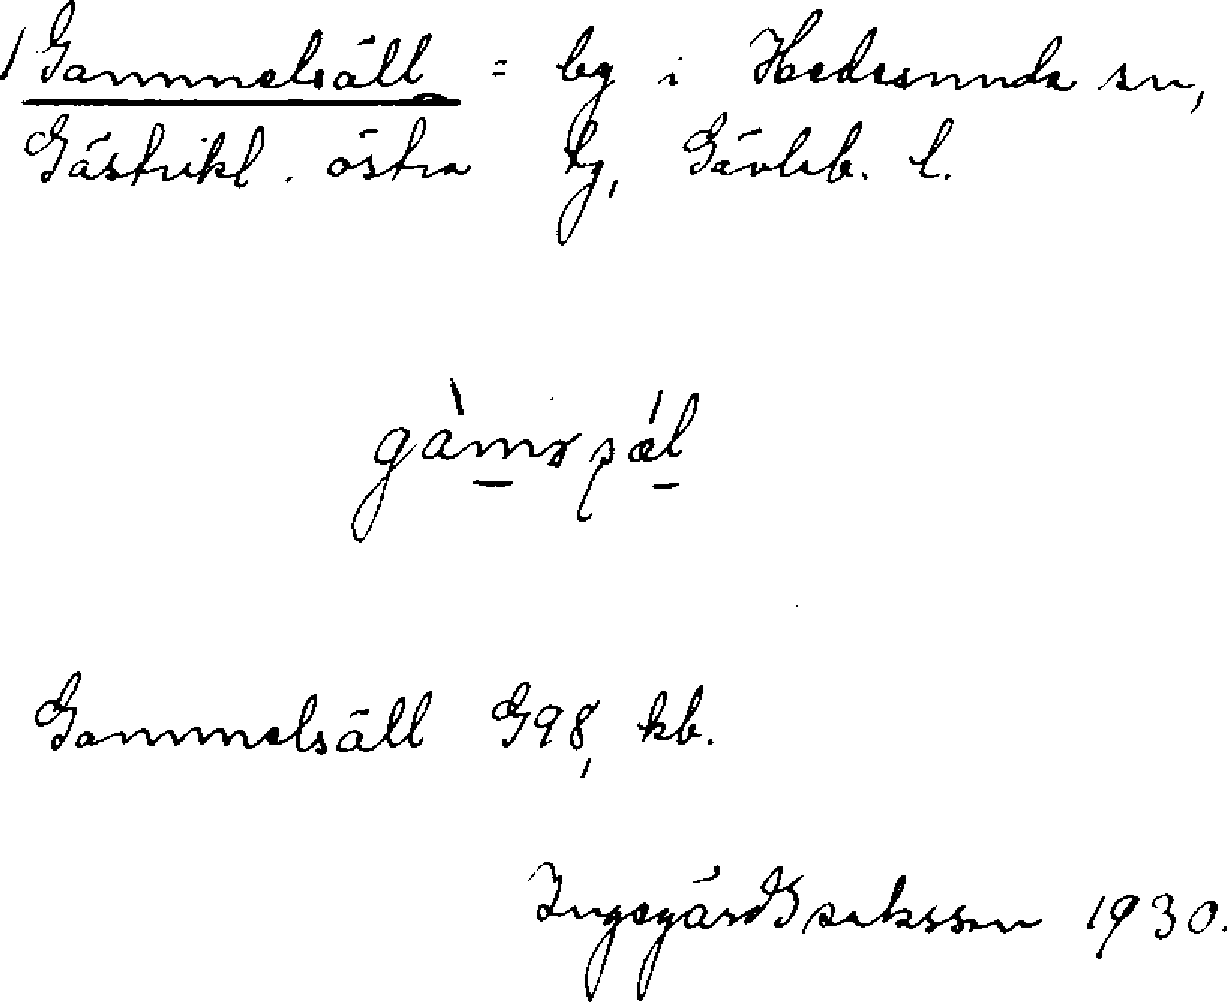 1 Gammelsäll = by i Hedesunda sn,
Gästrikl. östra tg, Gävleb. l.
Gammelsäll G98, kb.
Ingegärd Isaksson 1930.